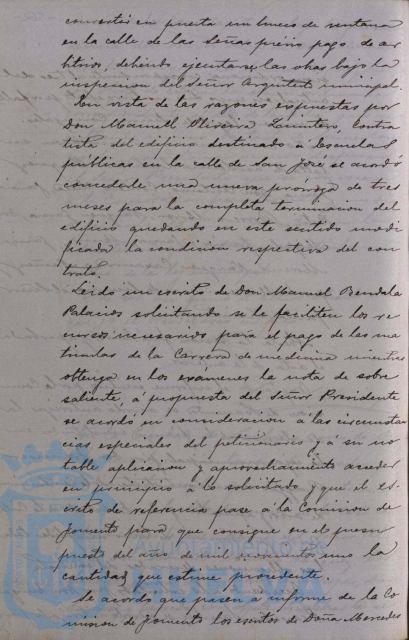 convertir en puerta un hueco de ventana
en la calle de las Señas previo pago de ar
bitrios, debiendo ejecutarse las obras bajo la
inspeccion del Señor Arquitecto municipal.
Con vista de las razones expuestas por
Don Manuel Oliveira Quintero, contra
tista del edificio destinado a Escuelas
públicas en la calle de San José se acordó
concederle una nueva prórroga de tres
meses para la completa terminacion del
edificio quedando en este sentido modi
ficada la condicion respectiva del con
trato.
Leido un escrito de Don Manuel Bendala
Palacios solicitando se le faciliten los re
cursos necesarios para el pago de las ma
triculas de la Carrera de medicina mientras
obtenga en los exámenes la nota de sobre
saliente, á propuesta del Señor Presidente
se acordó en consideracion á las circunstan
cias especiales del peticionario y á su no
table aplicacion y aprovechamiento acceder
en principio á lo solicitado y que el es
crito de referencia pase á la Comision de
Fomento para que consigne en el presu
puesto del año de mil novecientos uno la
cantidad que estime procedente.
Se acordó que pasen á informe de la Co
mision de Fomento los escritos de Doña Mercedes